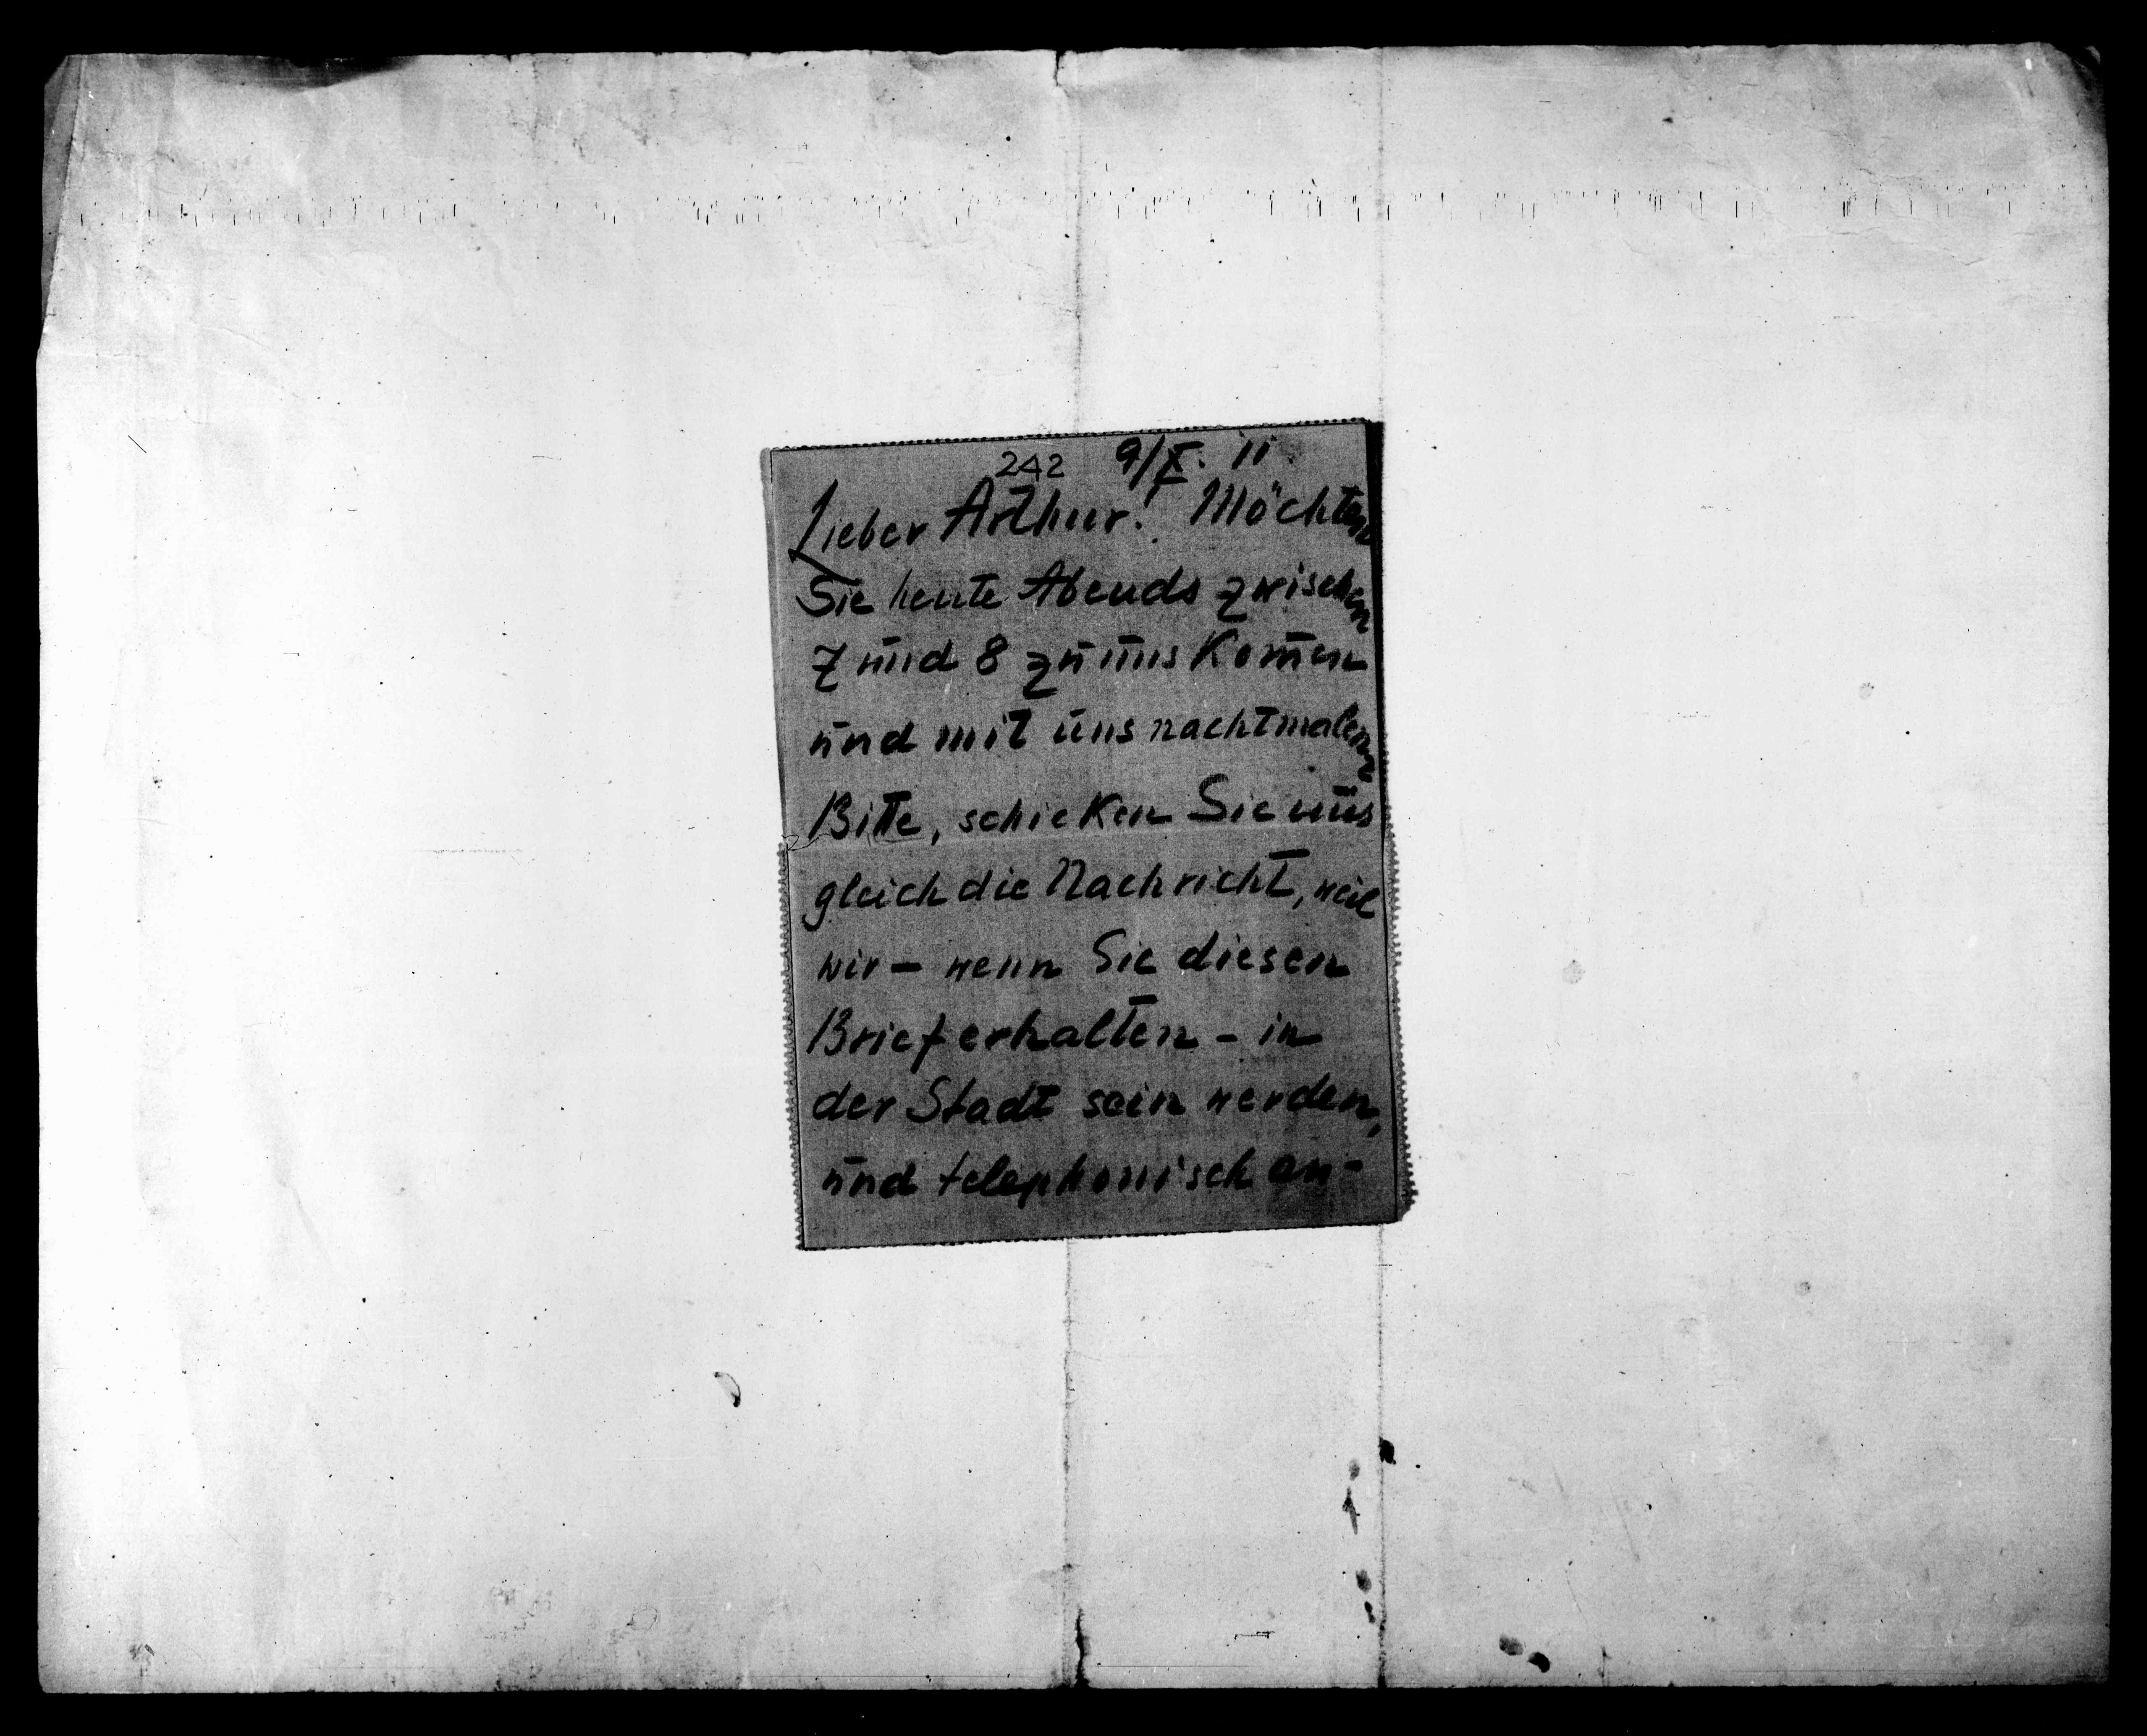 242 9/X. 11
Lieber Arthur! Möchten
Sie heute Abends zwischen
7 und 8 zu uns kom̄en
und mit uns nachtmalen
Bitte, schicken Sie uns
gleich die Nachricht, weil
wir – wenn Sie diesen
Brief erhalten – in
der Stadt sein werden,
und telephonisch an-